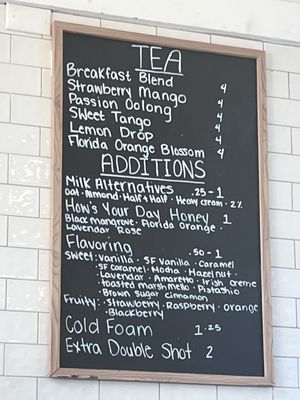 TEA
Breakfast Blend 4
Strawberry Mango 4
Passion Oolong 4
Sweet Tango 4
Lemon Drop 4
Florida Orange Blossom 4
ADDITIONS
Milk Alternatives .25-1
Oat · Almond · Half & Half · Heavy cream · 2%
How's Your Day Honey 1
Black mangrove · Florida Orange ·
Lavendar Rose
Flavoring .50-1
Sweet: Vanilla · SF Vanilla · Caramel
· SF Caramel · Mocha · Hazelnut ·
· Lavendar · Amaretto · Irish Creme
· toasted marshmello · Pistashio
· Brown Sugar Cinnamon
Fruity: · Strawberry · Raspberry · Orange
· Blackberry
Cold Foam 1.25
Extra Double Shot 2